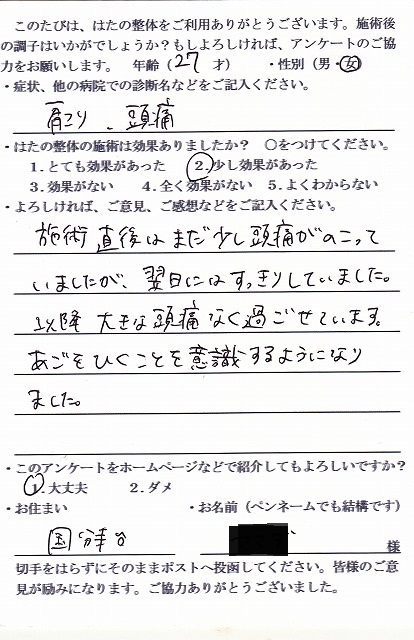 このたびは、はたの整体をご利用ありがとうございます。施術後
の調子はいかがでしょうか？もしよろしければ、アンケートのご協
力をお願いします。 年齢（27 才） ・性別（男・女）
・症状、他の病院での診断名などをご記入ください。
肩こり、頭痛
・はたの整体の施術は効果ありましたか？ ○をつけてください。
1.とても効果があった 2.少し効果があった
3.効果がない 4.全く効果がない 5.よくわからない
・よろしければ、ご意見、ご感想などをご記入ください。
施術直後はまだ少し頭痛がのこって
いましたが、翌日にはすっきりしていました。
以降大きな頭痛なく過ごせています。
あごをひくことを意識するようになり
ました。
・このアンケートをホームページなどで紹介してもよろしいですか？
1.大丈夫 2.ダメ
・お住まい ・お名前（ペンネームでも結構です）
国分寺台 様
切手をはらずにそのままポストへ投函してください。皆様のご意
見が励みになります。ご協力ありがとうございました。